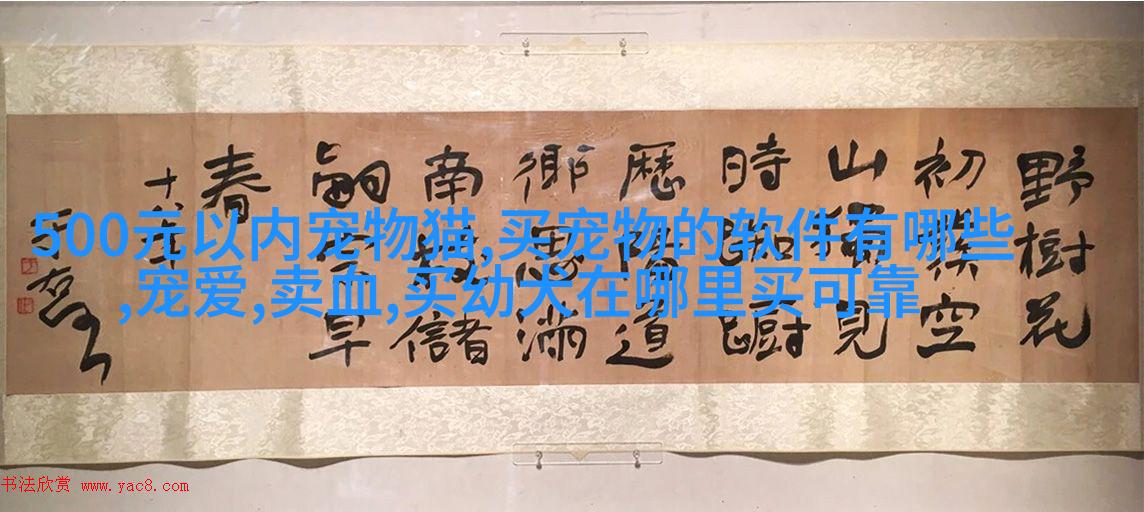 野樹花
初發空
山獨見
時踟躕
歷陽道
鄉思滿
南枝儲
嗣宗早
春
十八年
500元以内宠物猫,买宠物的软件有哪些
,宠爱,卖血,买幼犬在哪里买可靠
书法欣赏 www.yac8.com